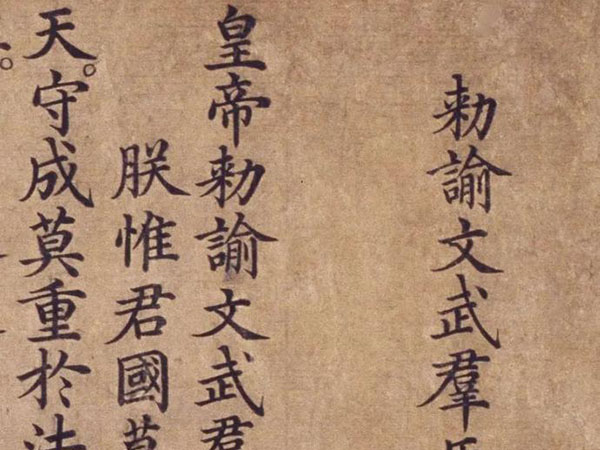 勑諭文武羣
皇帝勑諭文武羣
朕惟君國莫
天。守成莫重於法